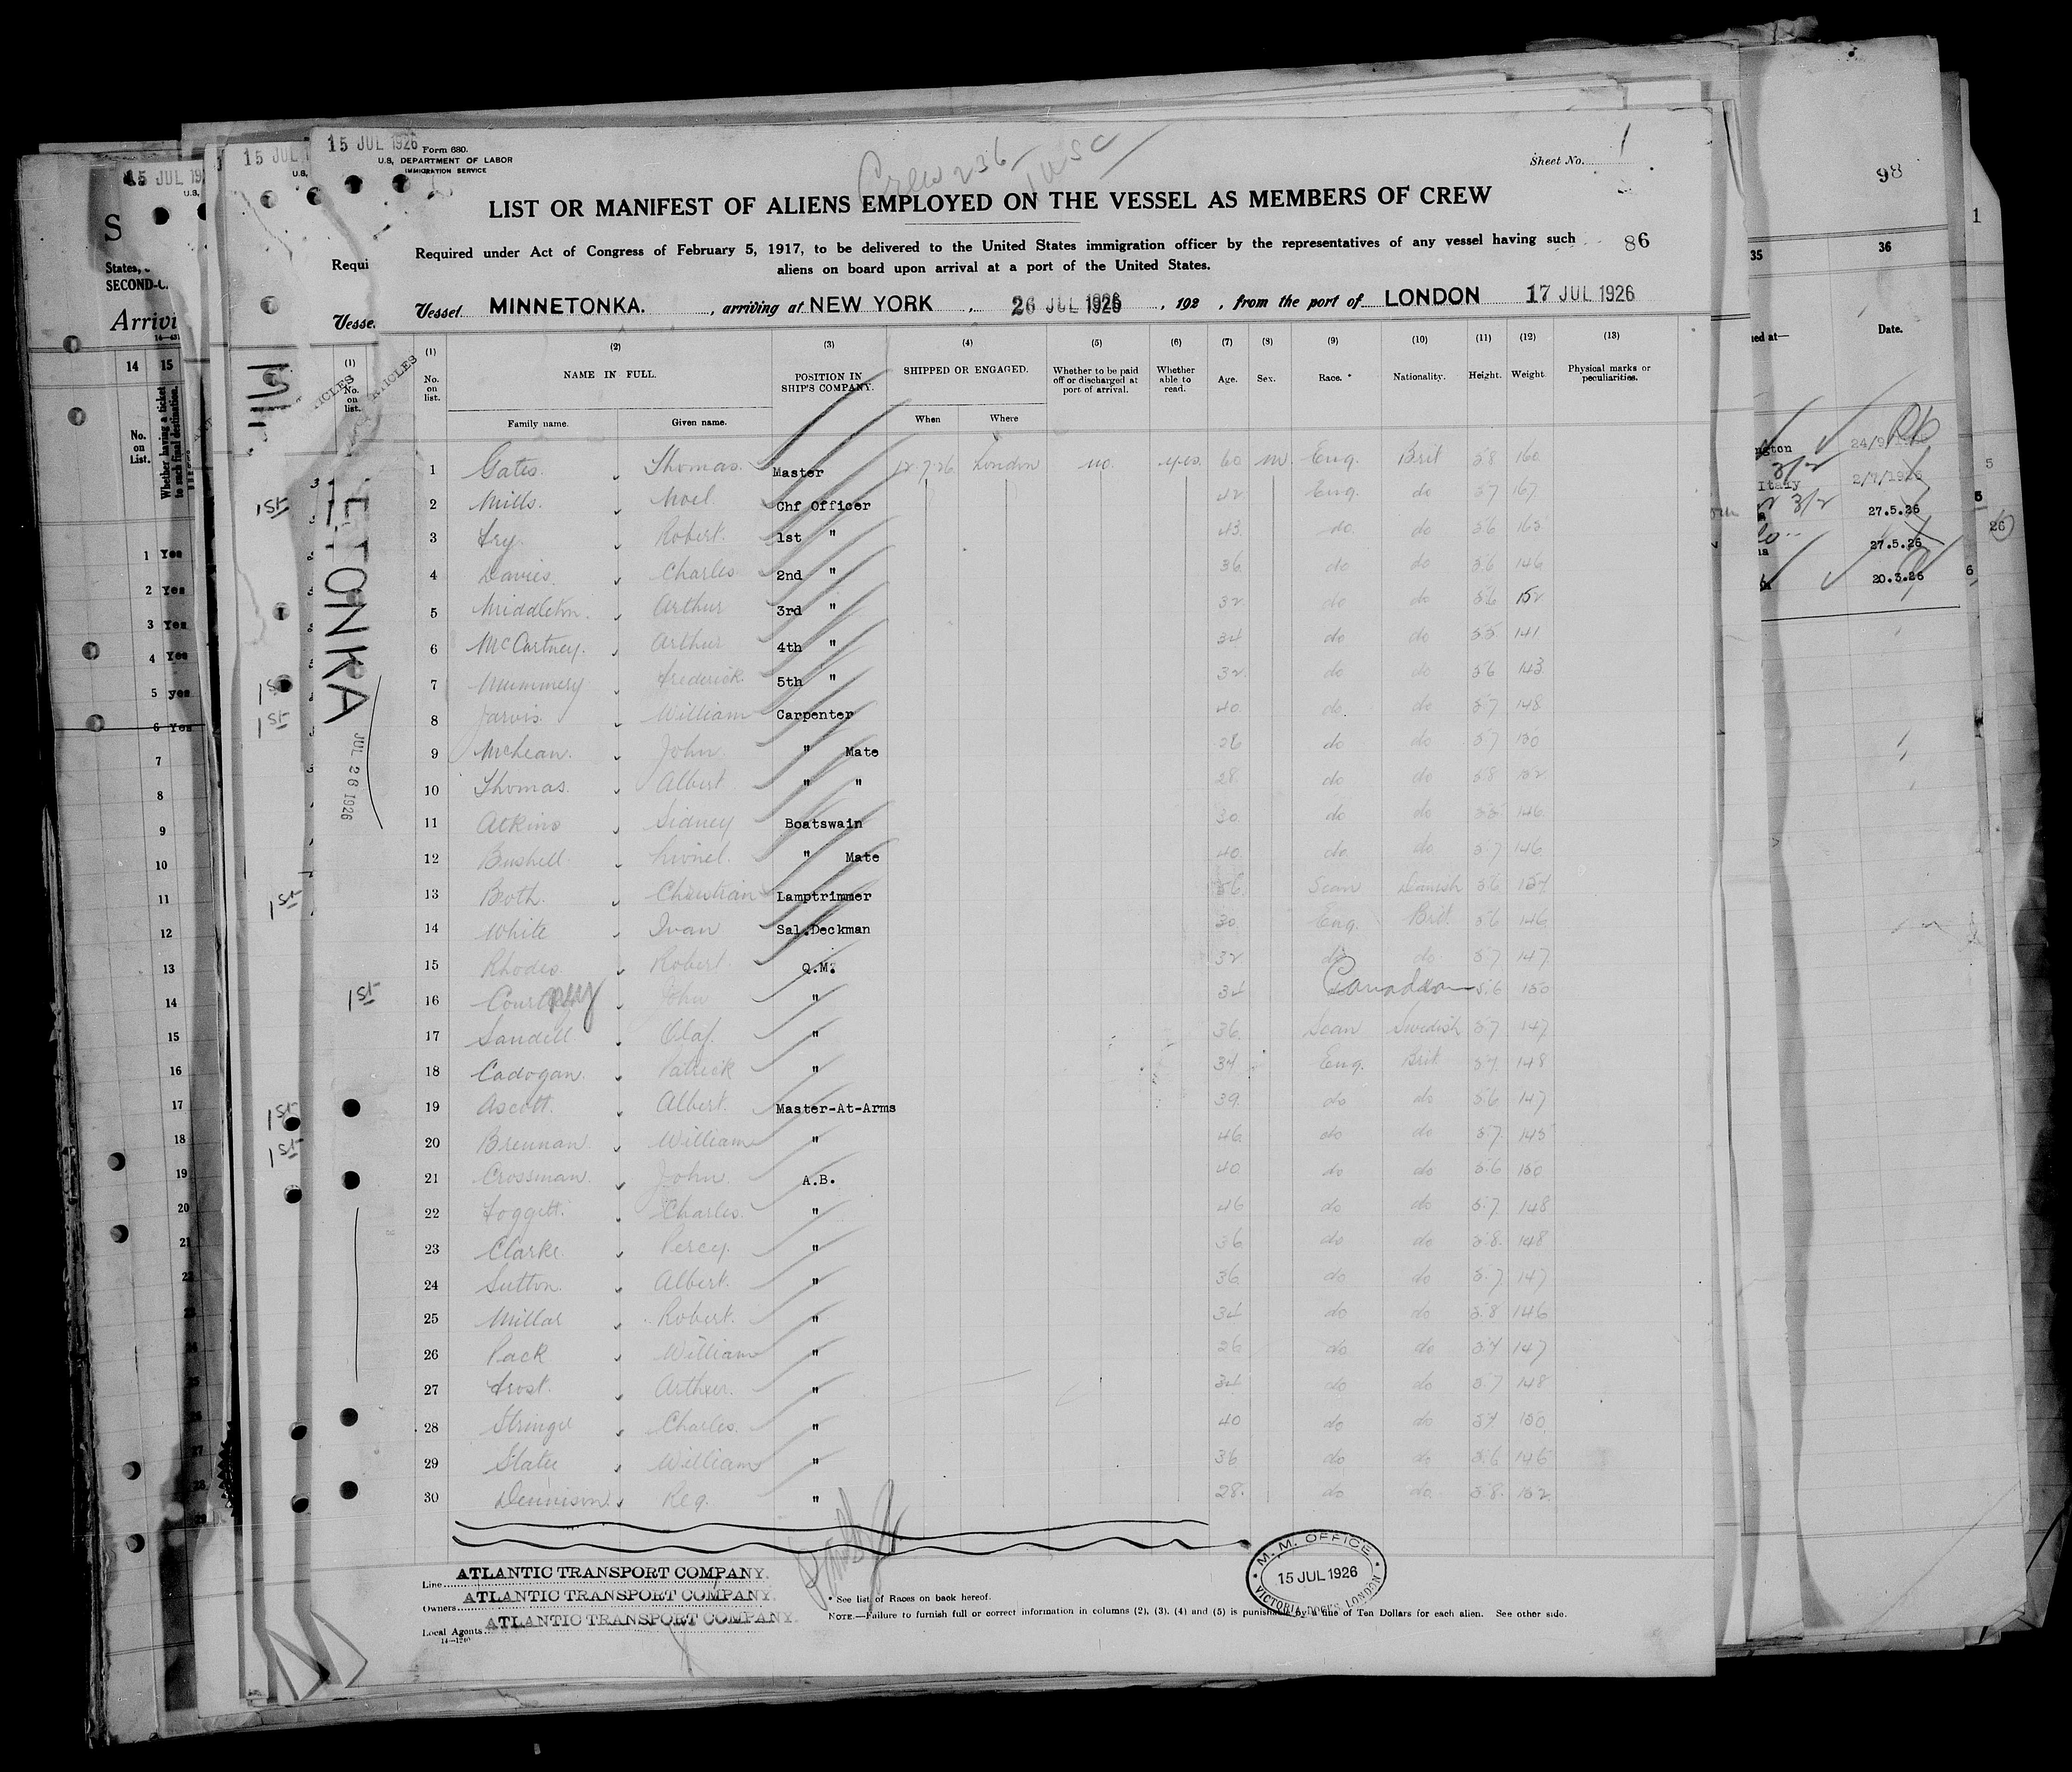 15 JUL 1926
Form 680.
U.S. DEPARTMENT OF LABOR
IMMIGRATION SERVICE
Crew 236
Sheet No. 1
LIST OR MANIFEST OF ALIENS EMPLOYED ON THE VESSEL AS MEMBERS OF CREW
Required under Act of Congress of February 5, 1917, to be delivered to the United States immigration officer by the representatives of any vessel having such
aliens on board upon arrival at a port of the United States.
86
Vessel MINNETONKA. , arriving at NEW YORK , 26 JUL 1926 , 192 , from the port of LONDON 17 JUL 1926
(1) (2) (3) (4) (5) (6) (7) (8) (9) (10) (11) (12) (13)
No. on list. NAME IN FULL. POSITION IN SHIP'S COMPANY. SHIPPED OR ENGAGED. Whether to be paid off or discharged at port of arrival. Whether able to read. Age. Sex. Race.* Nationality. Height. Weight. Physical marks or peculiarities.
Family name. Given name. When Where
1 Gates. Thomas. Master 12.7.26 London no. yes. 60 m. Eng. Brit 5 8 160
2 Mills. Noel. Chf Officer 42 Eng. do 5 7 167
3 Fry. Robert. 1st " 43 do do 5 6 163
4 Davies. Charles 2nd " 36 do do 5 6 146
5 Middleton. Arthur 3rd " 32 do do 5 6 152
6 McCartney. Arthur 4th " 34 do do 5 5 141
7 Mummery Frederick 5th " 32 do do 5 6 143
8 Jarvis William Carpenter 40 do do 5 7 148
9 McLean. John. " Mate 28 do do 5 7 150
10 Thomas. Albert " " 28 do do 5 8 152
11 Atkins Sidney Boatswain 30 do do 5 5 146
12 Bushell. Lionel. " Mate 40 do do 5 7 146
13 Broth. Christian Lamptrimmer 56 Scan Danish 5 6 154
14 White Ivan Sal.Deckman 30 Eng. Brit. 5 6 146
15 Rhodes Robert. Q.M. 32 do do 5 7 147
16 John " 34 Canadian 5 6 150
17 Sandell Olaf. " 36 Scan Swedish 5 7 147
18 Cadogan. Patrick " 34 Eng. Brit 5 7 148
19 Ascott. Albert. Master-At-Arms 39 do do 5 6 147
20 Brennan. William " 46 do do 5 7 145
21 Crossman. John A.B. 40 do do 5 6 150
22 Foggett. Charles. " 46 do do 5 7 148
23 Clarke. Percy. " 36 do do 5 8 148
24 Sutton. Albert. " 36 do do 5 7 147
25 Millar Robert. " 34 do do 5 8 146
26 Pack William " 26 do do 5 7 147
27 Frost. Arthur. " 34 do do 5 7 148
28 Stringer Charles. " 40 do do 5 7 150
29 Slater William " 36 do do 5 6 146
30 Dennison. Reg. " 28. do do 5 8 152
Line ATLANTIC TRANSPORT COMPANY.
Owners ATLANTIC TRANSPORT COMPANY.
Local Agents ATLANTIC TRANSPORT COMPANY.
14—1240
* See list of Races on back hereof.
NOTE.—Failure to furnish full or correct information in columns (2), (3), (4) and (5) is punishable by a fine of Ten Dollars for each alien. See other side.
M. M. OFFICE
15 JUL 1926
VICTORIA DOCKS LONDON
ETONKA
JUL 26 1926
15 JUL 1
Requi
Vesse
(1)
No. on list.
1st
1st
1st
1st
1st
1st
1st
15 JUL 19
States,
SECOND-C
Arrivi
14 15
No. on List.
Whether having a ticket to such final destination.
1 Yes
2 Yes
3 Yes
4 Yes
5 yes
6 Yes
7
8
9
10
11
12
13
14
15
16
17
18
19
20
21
98
35 36
Date.
24/9/
Italy 2/7/1926
27.5.26
27.5.26
20.3.26
1
5
5
26
6